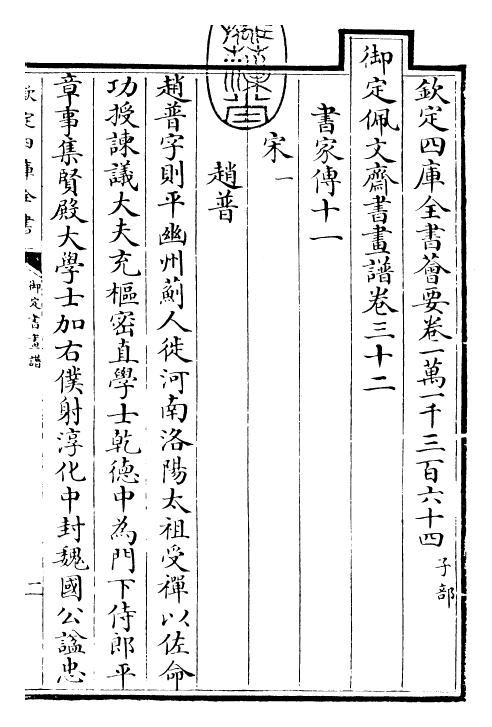 欽定四庫全書薈要卷一萬一千三百六十四 子部
御定佩文齋書畫譜卷三十二
書家傳十一
宋一
趙普
趙普字則平幽州薊人徙河南洛陽太祖受禪以佐命
功授諫議大夫充樞密直學士乾德中為門下侍郎平
章事集賢殿大學士加右僕射淳化中封魏國公諡忠
欽定四庫全書
御定書畫譜